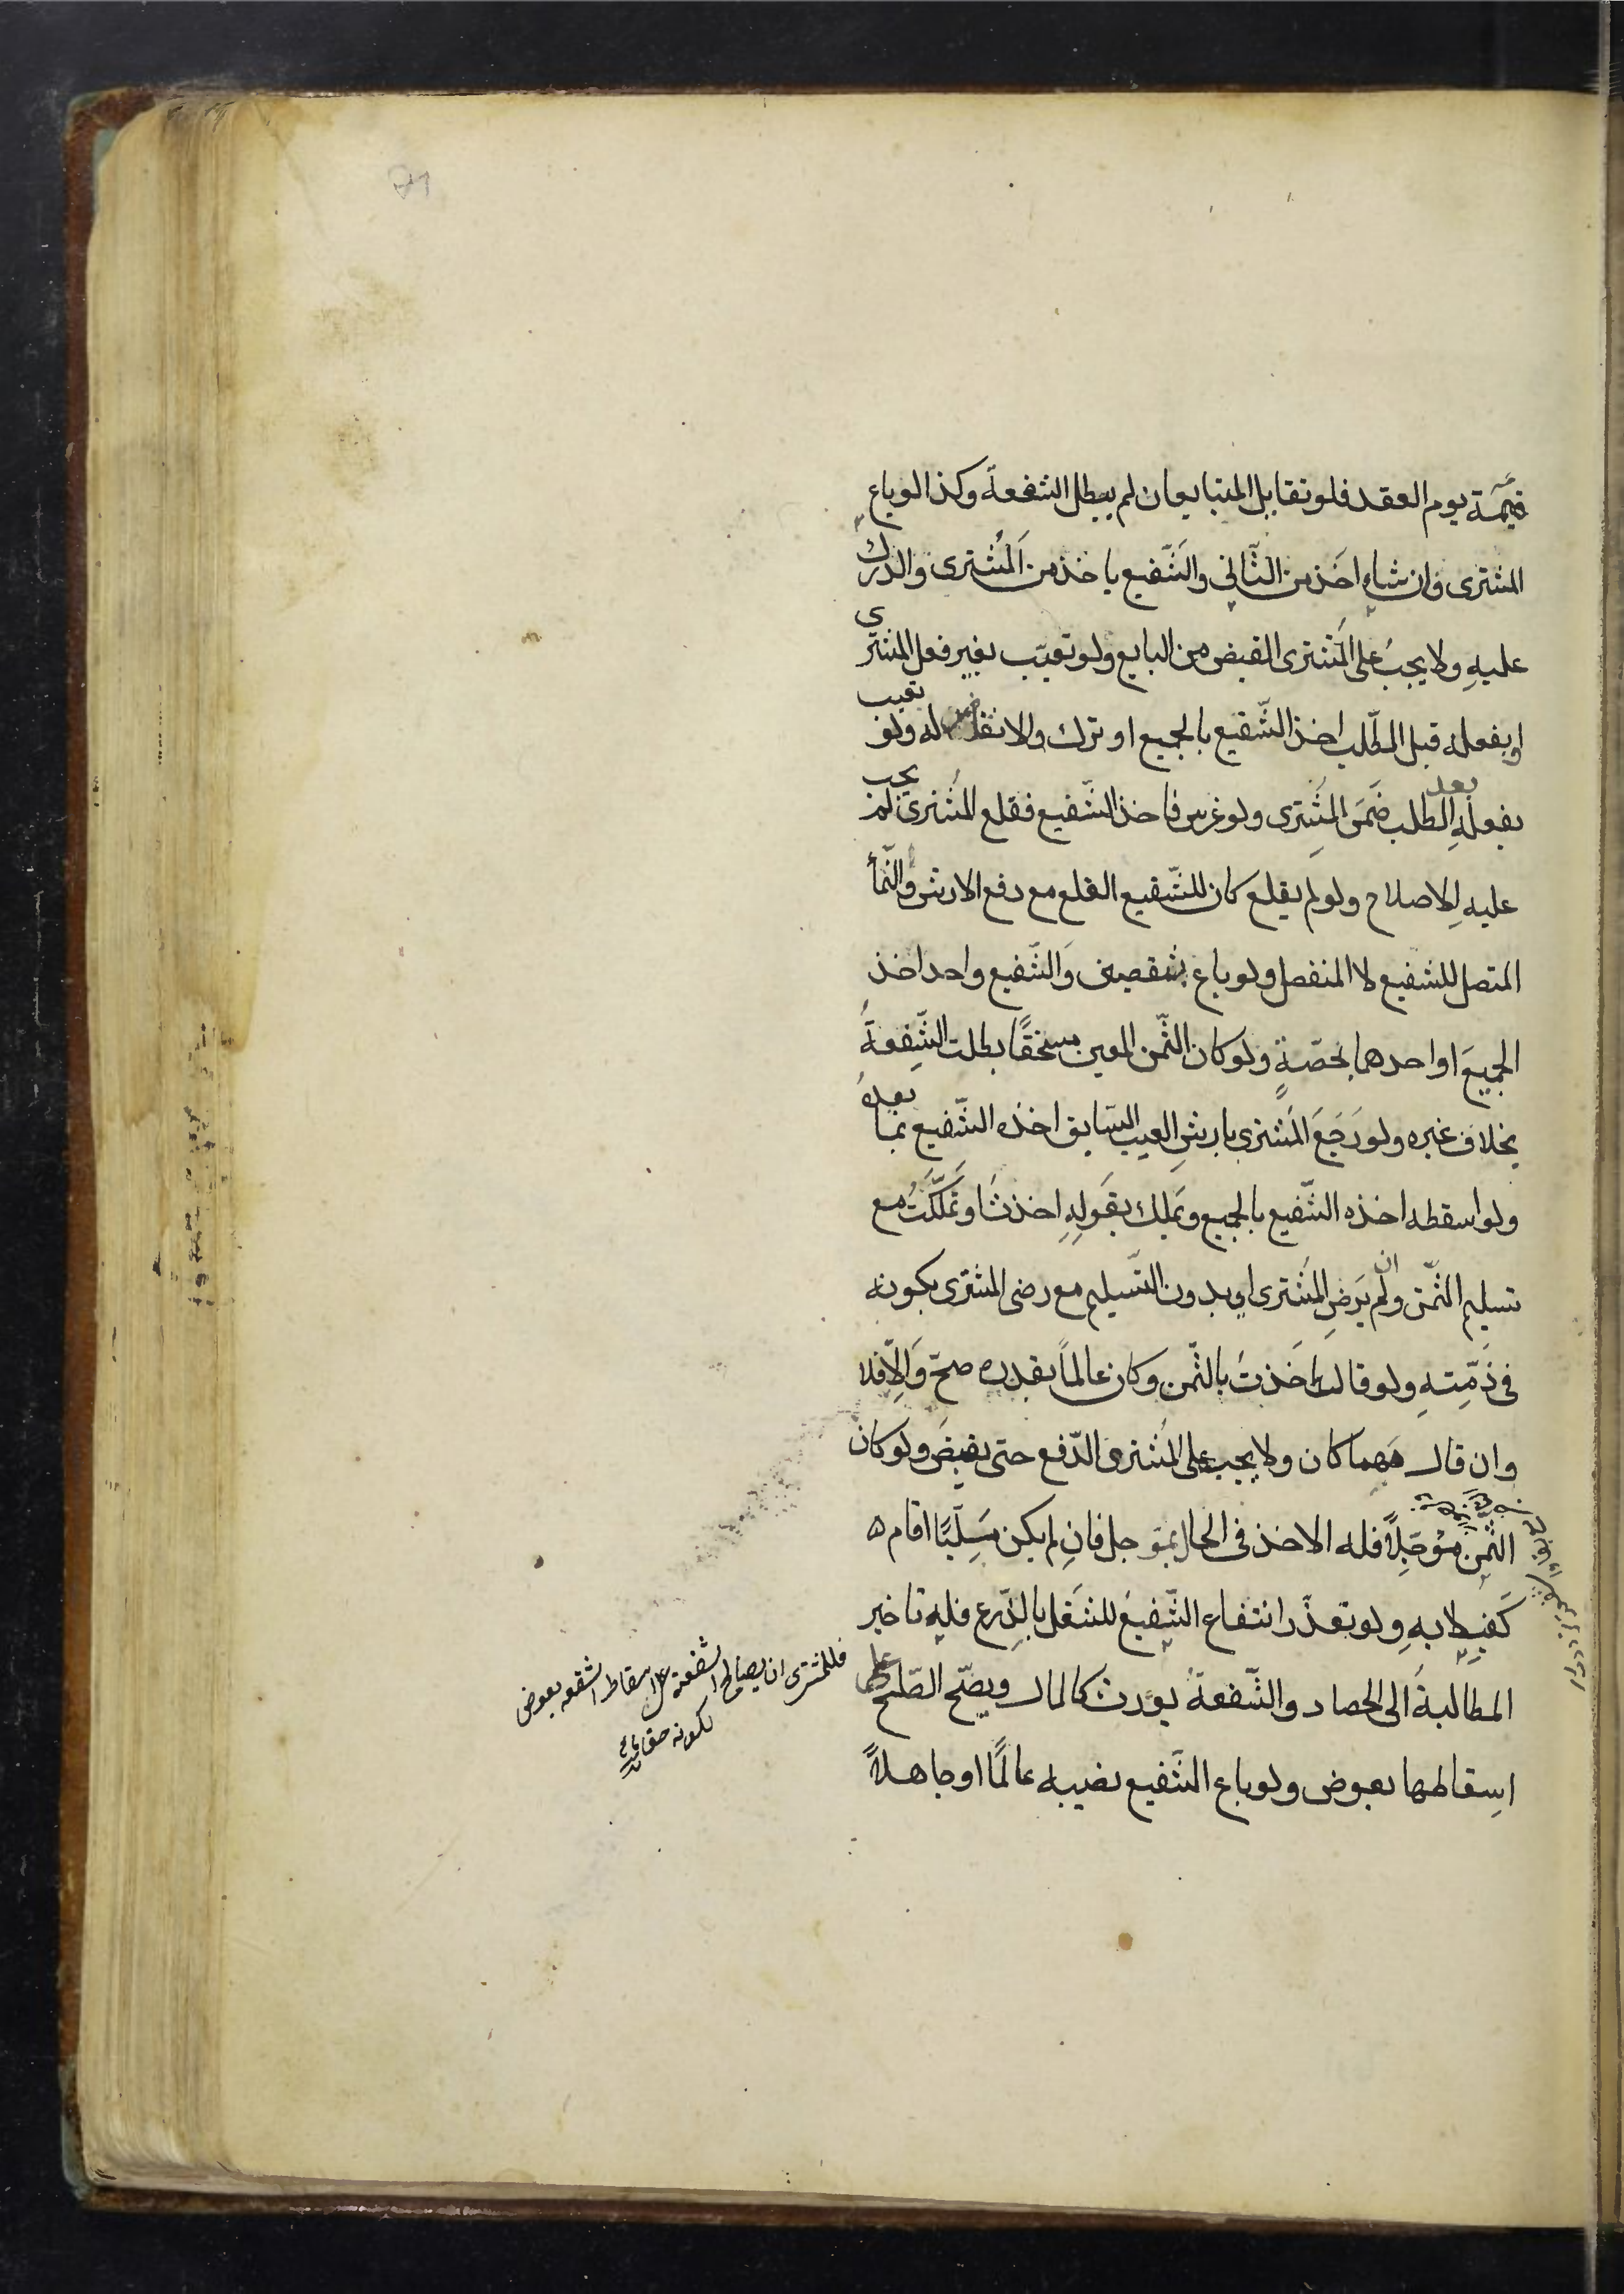 قيمة يوم العقد فلو تقايل المتبايعان لم يبطل الشفعة وكذا لو باع
المشترى وان شاء اخذ من الثّاني والشّفيع ياخذ من المُشترى والدرك
عليهِ ولا يجبُ على المُشترى القبض من البايع ولو تعيّب بغير فعل المشترى
او بفعله قبل الطّلب اخذ الشّفيع بالجميع او ترك والانقاض له ولو تعيب
بفعلهِ بعد الطلب ضَمَن المشِترى ولو غرس فاخذ الشّفيع فقلع المُشترى لم يجب
عليهِ الاصلاح ولو لم يقلع كان للشّفيع القلع مع دفع الارش والنّمأ
المتصل للشفيع لا المنفصل ولو باع شقصين وَالشّفيع واحد اخذ
الجميعَ او احدهما بحصّةٍ ولو كان الثّمن المعين مستحقًا بطلت الشّفِعةَ
بخلاف غيره ولو رَجَعَ المُشترى بارشِ العيب السّابق اخذه الشّفيع بما بعدهُ
ولو اسقطه اخذه الشّفيع بالجميع وتملك بقَولهِ اخذت او تَمَلّكَتُ مع
تسليم الثّمن وان لم يَرَضِ المُشترى او بدون التّسليم مع رضى المشترى بكونه
فى ذمّتِهِ ولو قال اَخَذتُ بالثّمن وكان عالماً بقدره صحّ وَاِلّا فلا
وان قال مَهما كان ولا يجب على المُشترى الدّفع حتى يقبضَ ولو كان
الثّمن مؤجّلاً فله الاخذ فى الحال بمؤجل فانِ لم يكن مَليًّا اقام
كَفيلا بهِ ولو تعذّر انتفاع الشّفيع للشَغل بالزّرع فله تاخير
المطالبةَ الى الحصاد والشّفعة تورث كالمال ويصّح الصّلح على
اسِقاطها بعوض ولو باع الشّفيع نصيبه عالمًا او جاهلاً
فللمشترى ان يصالح الشفعة على اسقاط الشفعه بعوض
لكونه حقا